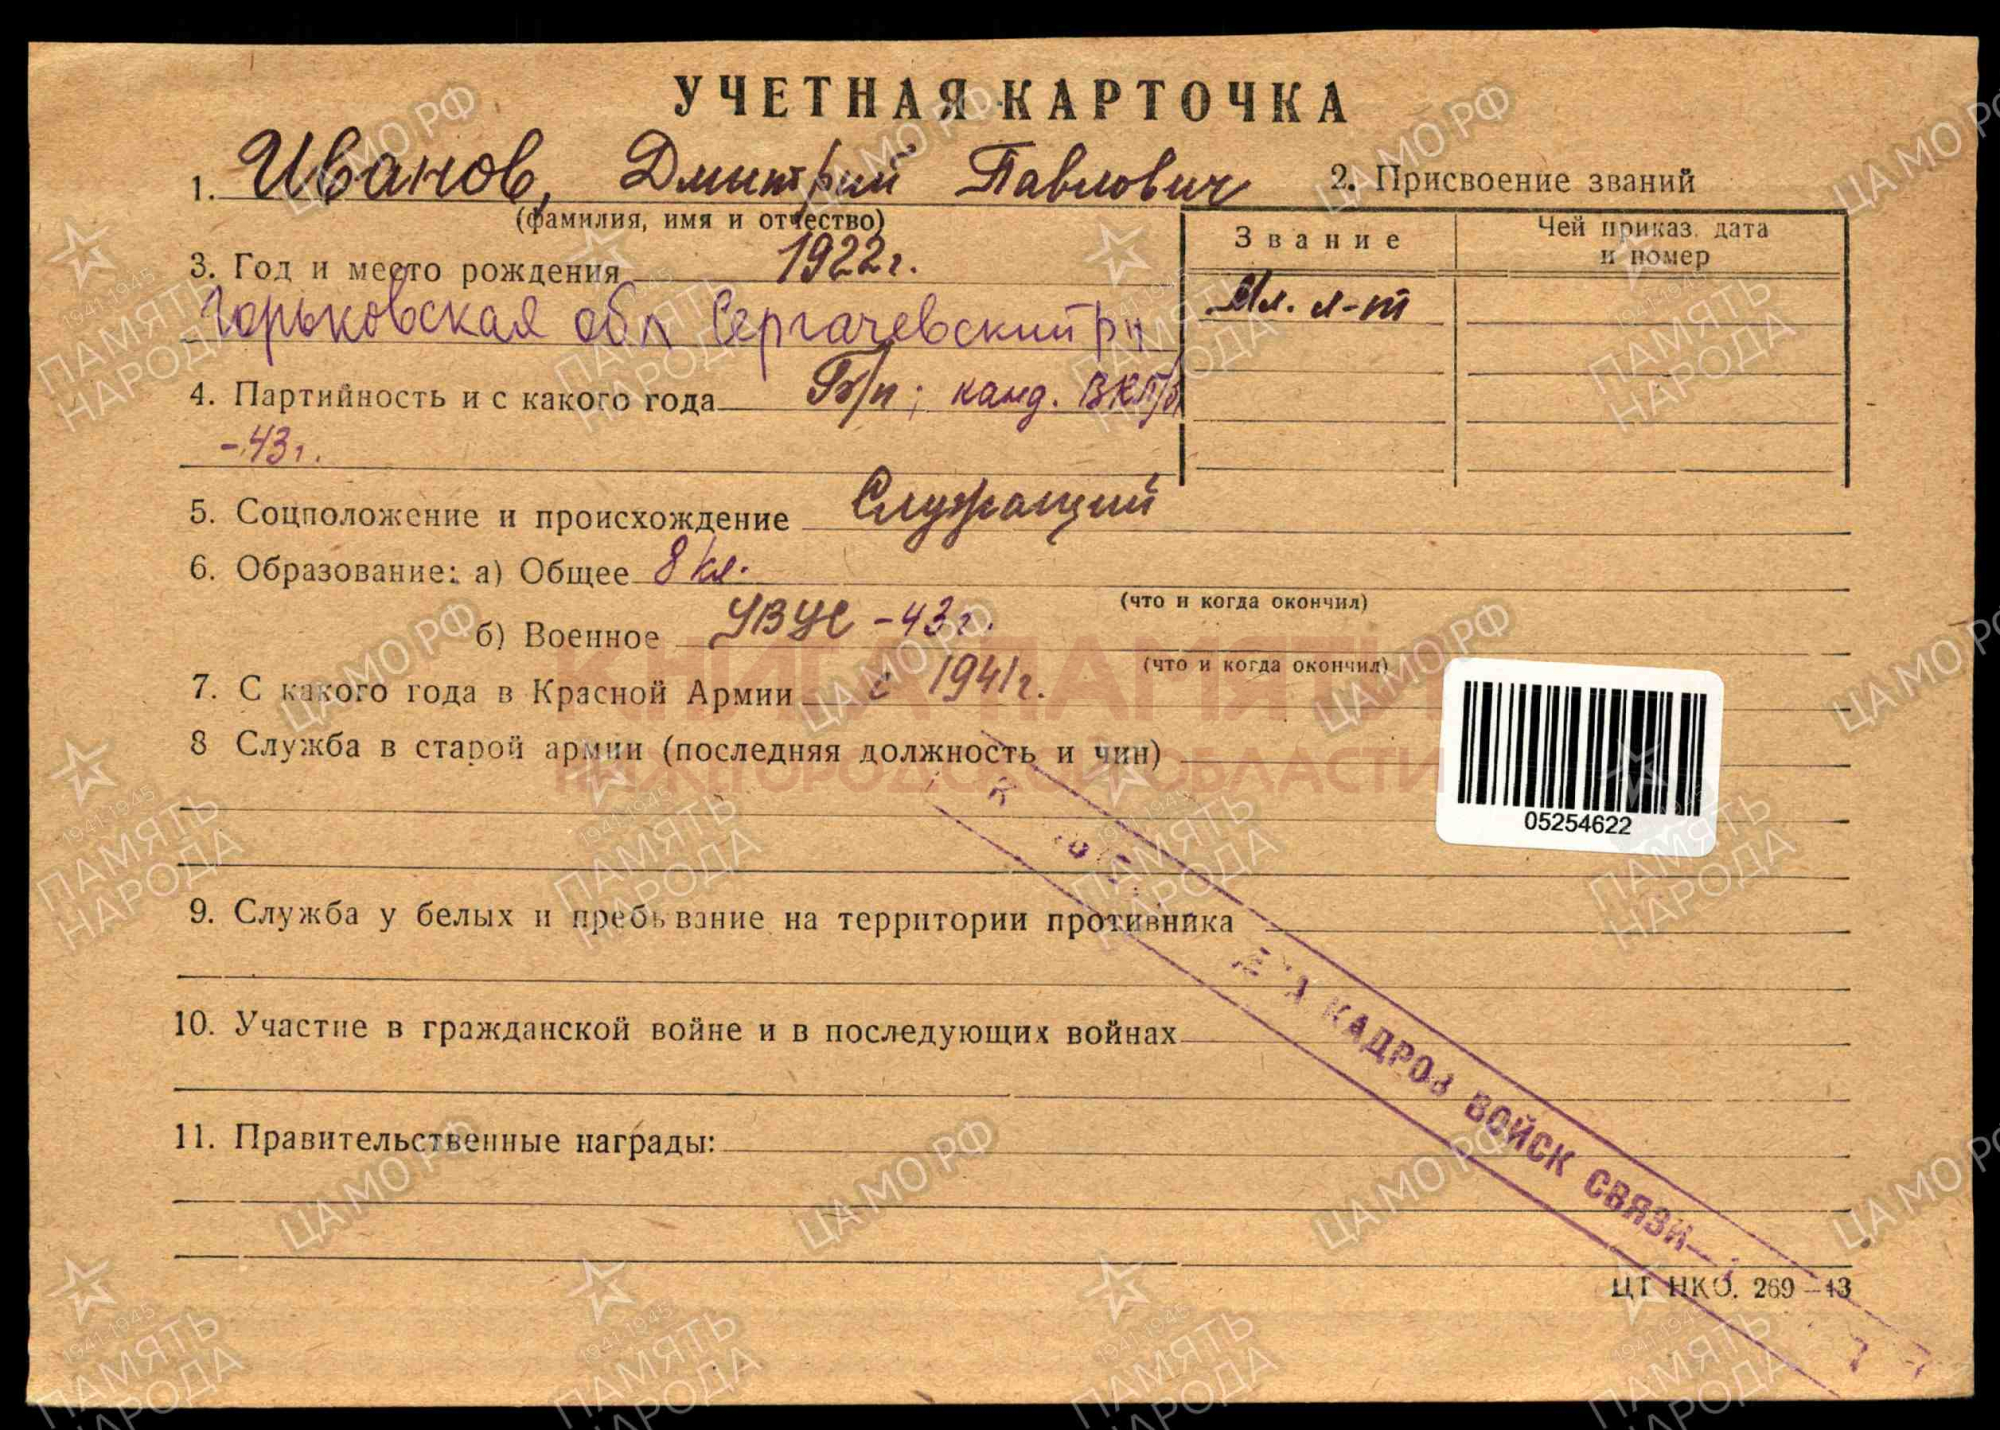 УЧЕТНАЯ КАРТОЧКА
1. Иванов, Дмитрий Павлович
(фамилия, имя и отчество)
2. Присвоение званий
Звание
Чей приказ, дата и номер
Мл. л-т
3. Год и место рождения 1922 г.
Горьковская обл Сергачевский рн
4. Партийность и с какого года Б/п; канд. ВКП/б
-43 г.
5. Соцположение и происхождение Служащий
6. Образование: а) Общее 8 кл.
(что и когда окончил)
б) Военное УВУС -43 г.
(что и когда окончил)
7. С какого года в Красной Армии с 1941 г.
8 Служба в старой армии (последняя должность и чин)
9. Служба у белых и пребывание на территории противника
10. Участие в гражданской войне и в последующих войнах
11. Правительственные награды:
ЦТ НКО. 269—43
05254622
КАДРОВ ВОЙСК СВЯЗИ
КНИГА ПАМЯТИ
НИЖЕГОРОДСКОЙ ОБЛАСТИ
ЦА МО РФ
1941-1945
ПАМЯТЬ
НАРОДА